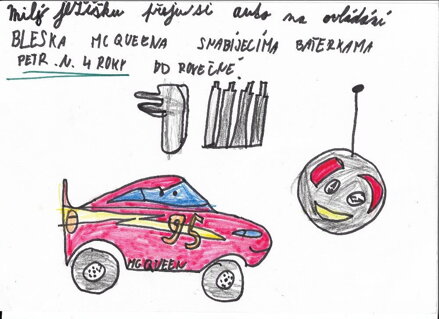 Milý ježíšku přeju si auto na ovládání
BLESKA MC QUEENA S NABÍJECÍMA BATERKAMA
PETR .N. 4 ROKY
95
MC QUEEN